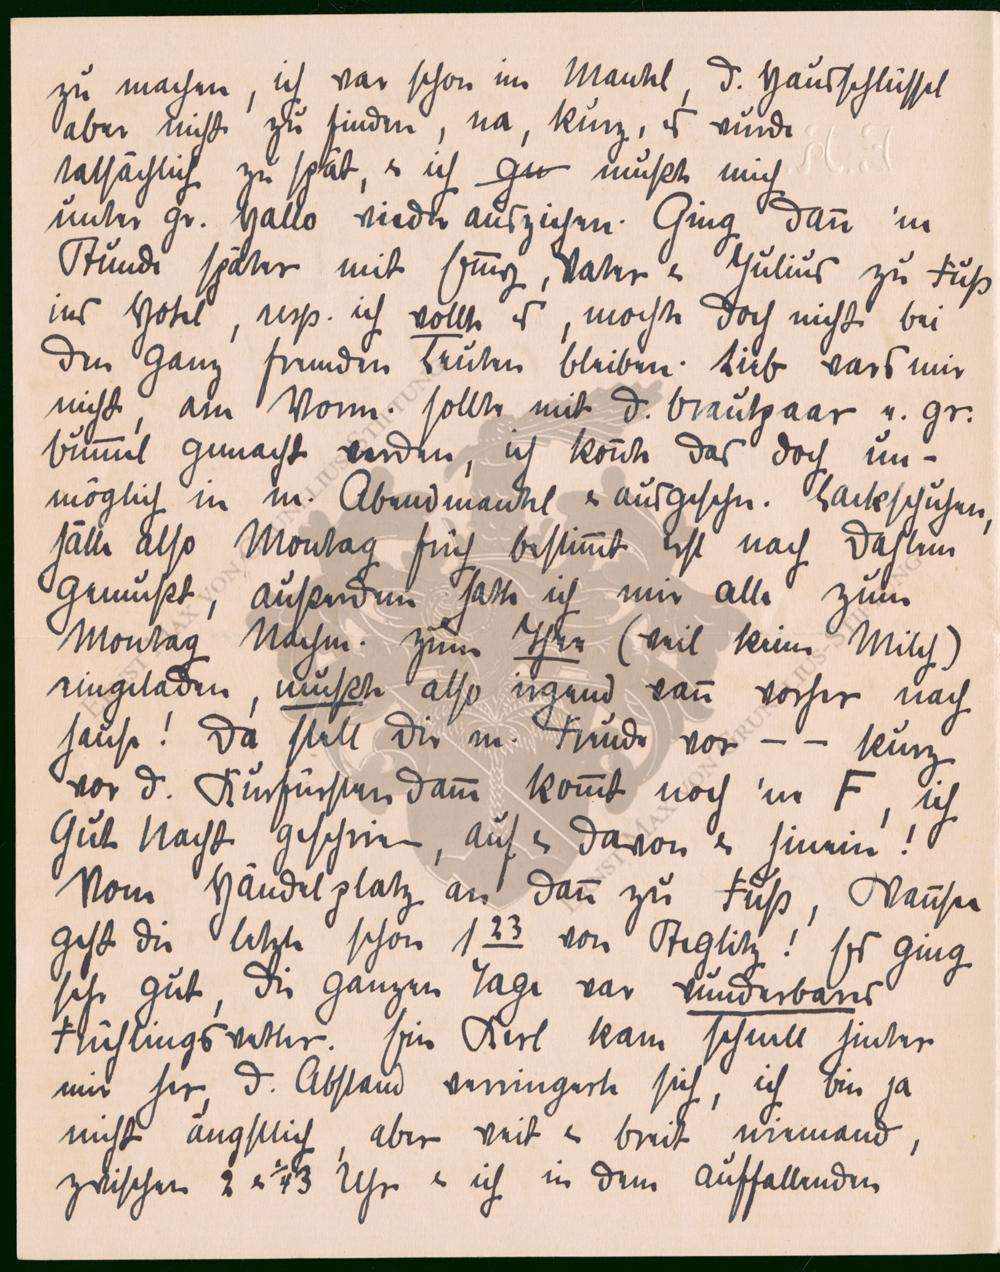 zu machen, ich war schon im Mantel, d. Hausschlüssel
aber nicht zu finden, na, kurz, es wurde
tatsächlich zu spät, & ich mußte mich
unter gr. Hallo wieder ausziehen. Ging dann 'ne
Stunde später mit Vater & Julius zu Fuß
ins Hotel, resp. ich wollte es, mochte doch nicht bei
den ganz fremden Leuten bleiben. Lieb wars mir
nicht, am Vorm. sollte mit d. Brautpaar e. gr.
Bummel gemacht werden, ich konnte das doch un-
möglich in m. Abendmantel & ausgeschn. Lackschuhen,
hätte also Montag früh bestimmt erst nach Dahlem
gemußt, außerdem hatte ich mir alle zum
Montag Nachm. zum Thee (weil keine Milch)
eingeladen, mußte also irgend wann vorher nach
hause! Da stell dir m. Freude vor – – kurz
vor d. Kurfürstendamm kommt noch 'ne F, ich
Gute Nacht geschrien, auf & davon & hinein!
Vom Händelplatz an dann zu Fuß, Wannsee
geht die letzte schon 1 23 von Steglitz! Es ging
sehr gut, die ganzen Tage war wunderbares
Frühlingswetter. Ein Kerl kam schnell hinter
mir her, d. Abstand verringerte sich, ich bin ja
nicht ängstlich, aber weit & breit niemand,
zwischen 2 & 1/43 Uhr & ich in dem auffallenden
E.K.
ERNST MAX VON GRUNELIUS-STIFTUNG
ERNST MAX VON GRUNELIUS-STIFTUNG